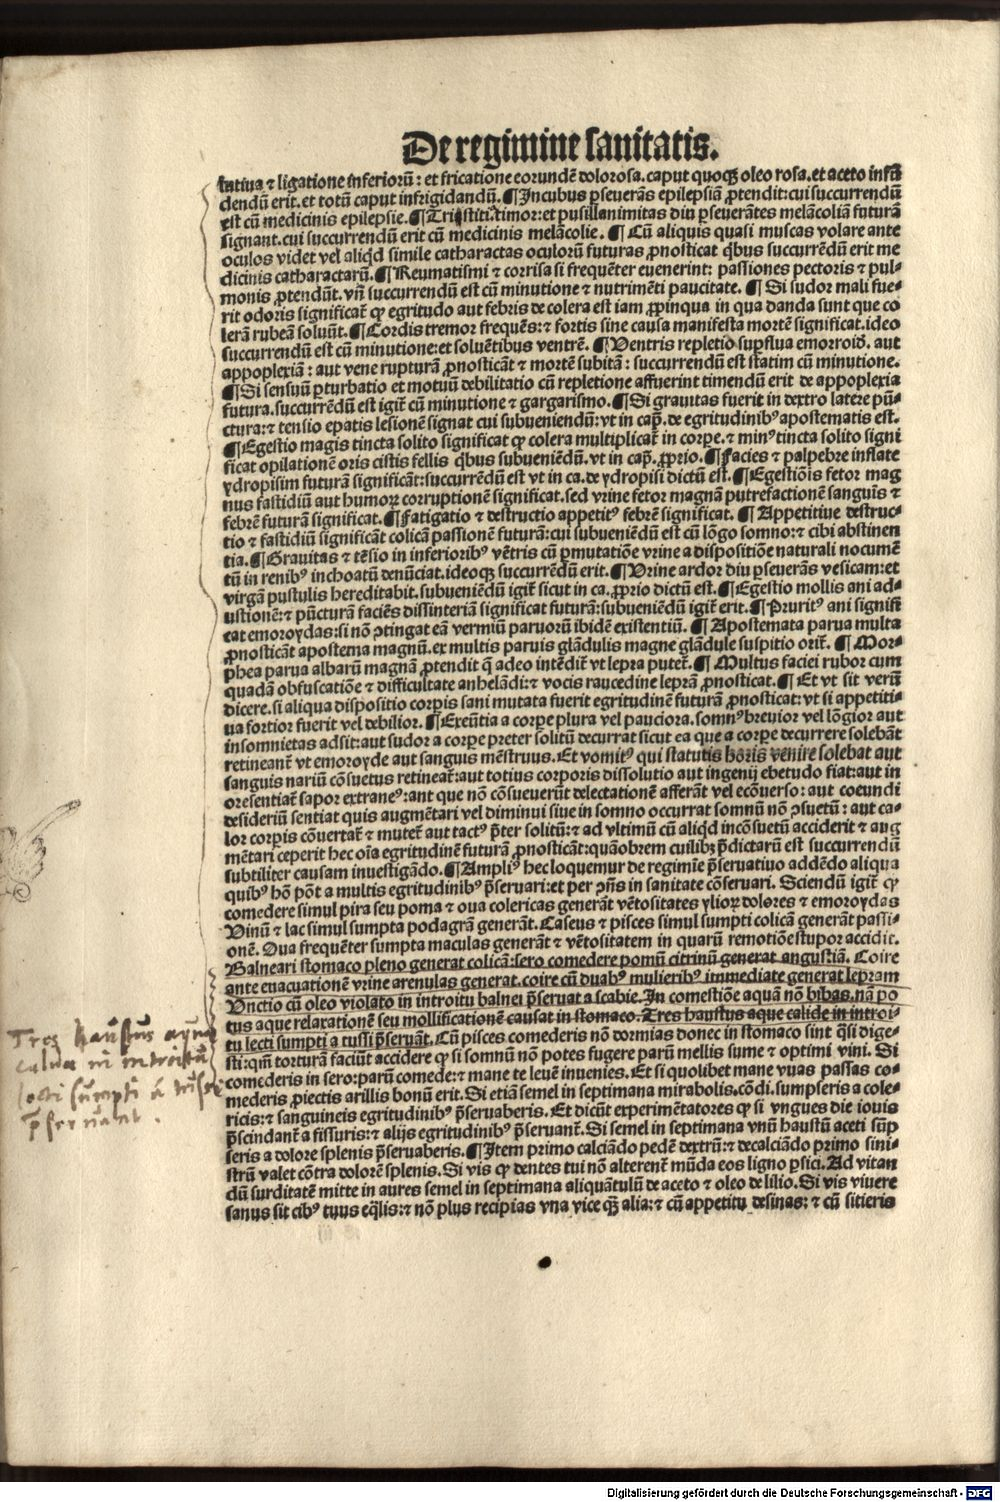 De regimine sanitatis.
lutiua ⁊ ligatione inferiorū: et fricatione eorundē dolorosa. caput quoqꝫ oleo rosa. et aceto infū
dendū erit. et totū caput infrigidandū. ¶ Incubus ꝑseuerās epilepsiā ꝓtendit: cui succurrendū
est cū medicinis epilepsie. ¶ Tristiti. timor: et pusillanimitas diu ꝑseuerātes melācoliā futurā
signant. cui succurrendū erit cū medicinis melācolie. ¶ Cū aliquis quasi muscas volare ante
oculos videt vel aliqđ simile catharactas oculorū futuras ꝓnosticat q̇bus succurrēdū erit me
dicinis catharactarū. ¶ Reumatismi ⁊ corrisa si frequēter euenerint: passiones pectoris ⁊ pul-
monis ꝓtendūt. vñ succurrendū est cū minutione ⁊ nutrimēti paucitate. ¶ Si sudor mali fue-
rit odoris significat̄ ꝙ egritudo aut febris de colera est iam ꝓpinqua in qua danda sunt que co
lerā rubeā soluūt. ¶ Cordis tremor frequēs: ⁊ fortis sine causa manifesta mortē significat. ideo
succurrendū est cū minutione: et soluētibus ventrē. ¶ Ventris repletio suꝑflua emorroid. aut
appoplexiā: aut vene rupturā ꝓnosticāt ⁊ mortē subitā: succurrendū est statim cū minutione.
¶ Si sensuū ꝑturbatio et motuū debilitatio cū repletione affuerint timendū erit de appoplexia
futura. succurrēdū est igit̄ cū minutione ⁊ gargarismo. ¶ Si grauitas fuerit in dextro latere pū-
ctura: ⁊ tensio epatis lesionē signat cui subueniendū: vt in cap̄. de egritudinibꝰ apostematis est.
¶ Egestio magis tincta solito significat ꝙ colera multiplicat̄ in corꝑe. ⁊ minꝰ tincta solito signi
ficat opilationē oris cistis fellis q̇bus subueniēdū. vt in cap̄. ꝓprio. ¶ Facies ⁊ palpebre inflate
ydropisim futurā significāt: succurrēdū est vt in ca. de ydropisi dictū est. ¶ Egestiōis fetor mag
nus fastidiū aut humoꝝ corruptionē significat. sed vrine fetor magnā putrefactionē sanguīs ⁊
febrē futurā significat. ¶ Fatigatio ⁊ destructio appetitꝰ febrē significat. ¶ Appetitiue destruc-
tio ⁊ fastidiū significāt colicā passionē futurā: cui subueniēdū est cū lōgo somno: ⁊ cibi abstinen
tia. ¶ Grauitas ⁊ tēsio in inferioribꝰ vētris cū ꝑmutatiōe vrine a dispositiōe naturali nocumē
tū in renibꝰ inchoatū denūciat. ideoqꝫ succurrēdū erit. ¶ Vrine ardor diu ꝑseuerās vesicam: et
virgā pustulis hereditabit. subueniēdū igit̄ sicut in ca. ꝓprio dictū est. ¶ Egestio mollis ani ad-
ustionē: ⁊ pūcturā faciēs dissinteriā significat futurā: subueniēdū igit̄ erit. ¶ Pruritꝰ ani signifi
cat emoroydas: si nō ꝯtingat eā vermiū paruorū ibidē existentiū. ¶ Apostemata parua multa
ꝓnosticāt apostema magnū. ex multis paruis glādulis magne glādule suspitio orit̄. ¶ Mor-
phea parua albarū magnā ꝓtendit q̄ adeo intēdit̄ vt lepra putet̄. ¶ Multus faciei rubor cum
quadā obfuscatiōe ⁊ difficultate anhelādi: ⁊ vocis raucedine leprā ꝓnosticat. ¶ Et vt sit verū
dicere. si aliqua dispositio corꝑis sani mutata fuerit egritudinē futurā ꝓnosticat: vt si appetiti-
ua fortior fuerit vel debilior. ¶ Exeūtia a corꝑe plura vel pauciora. somnꝰ breuior vel lōgior aut
insomnietas adsit: aut sudor a corꝑe preter solitū decurrat sicut ea que a corꝑe decurrere solebāt
retineant̄ vt emoroyde aut sanguis mēstruus. Et vomitꝰ qui statutis horis venire solebat aut
sanguis nariū cōsuetus retineat̄: aut totius corporis dissolutio aut ingenij ebetudo fiat: aut in
ore sentiat̄ sapor extraneꝰ: aut que nō cōsueuerūt delectationē afferāt vel ecōuerso: aut coeundi
desideriū sentiat quis augmētari vel diminui siue in somno occurrat somnū nō ꝯsuetū: aut ca-
lor corꝑis cōuertat̄ ⁊ mutet̄ aut tactꝰ p̄ter solitū: ⁊ ad vltimū cū aliqđ incōsuetū acciderit ⁊ aug
mētari ceperit hec oīa egritudinē futurā ꝓnosticāt: quāobrem cuilibꝫ p̄dictarū est succurrendū
subtiliter causam inuestigādo. ¶ Ampliꝰ hec loquemur de regimīe p̄seruatiuo addēdo aliqua
quibꝰ hō pōt a multis egritudinibꝰ p̄seruari: et per ꝯñs in sanitate cōseruari. Sciendū igit̄ ꝙ
comedere simul pira seu poma ⁊ oua colericas generāt vētositates ylioꝝ dolores ⁊ emoroydas
Vinū ⁊ lac simul sumpta podagrā generāt. Caseus ⁊ pisces simul sumpti colicā generāt passi-
onē. Oua frequēter sumpta maculas generāt ⁊ vētositatem in quarū remotiōe stupor accidit.
Balneari stomaco pleno generat colicā: sero comedere pomū citrinū generat angustiā. Coire
ante euacuationē vrine arenulas generat. coire cū duabꝰ mulieribꝰ immediate generat lepram
Vnctio cū oleo violato in introitu balnei p̄seruat a scabie. In comestiōe aquā nō bibas. nā po
tus aque relaxationē seu mollificationē causat in stomaco. Tres haustus aque calide in introi-
tu lecti sumpti a tussi p̄seruāt. Cū pisces comederis nō dormias donec in stomaco sint q̄si dige-
sti: qm̄ torturā faciūt accidere ꝙ si somnū nō potes fugere parū mellis sume ⁊ optimi vini. Si
comederis in sero: parū comede: ⁊ mane te leuē inuenies. Et si quolibet mane vuas passas co-
mederis ꝓiectis arillis bonū erit. Si etiā semel in septimana mirabolis. cōdi. sumpseris a cole-
ricis: ⁊ sanguineis egritudinibꝰ p̄seruaberis. Et dicūt experimētatores ꝙ si vngues die iouis
p̄scindant̄ a fissuris: ⁊ alijs egritudinibꝰ p̄seruant̄. Si semel in septimana vnū haustū aceti sūp
seris a dolore splenis p̄seruaberis. ¶ Item primo calciādo pedē dextrū: ⁊ decalciādo primo sini-
strū valet cōtra dolorē splenis. Si vis ꝙ dentes tui nō alterent̄ mūda eos ligno ꝑsici. Ad vitan
dū surditatē mitte in aures semel in septimana aliquātulū de aceto ⁊ oleo de lilio. Si vis viuere
sanus sit cibꝰ tuus eq̄lis: ⁊ nō plus recipias vna vice qꝫ̄ alia: ⁊ cū appetitu desinas: ⁊ cū sitieris
Tres haustus aque
calide in introitu
lecti sumpti a tussi
p̄seruant.
Digitalisierung gefördert durch die Deutsche Forschungsgemeinschaft - DFG